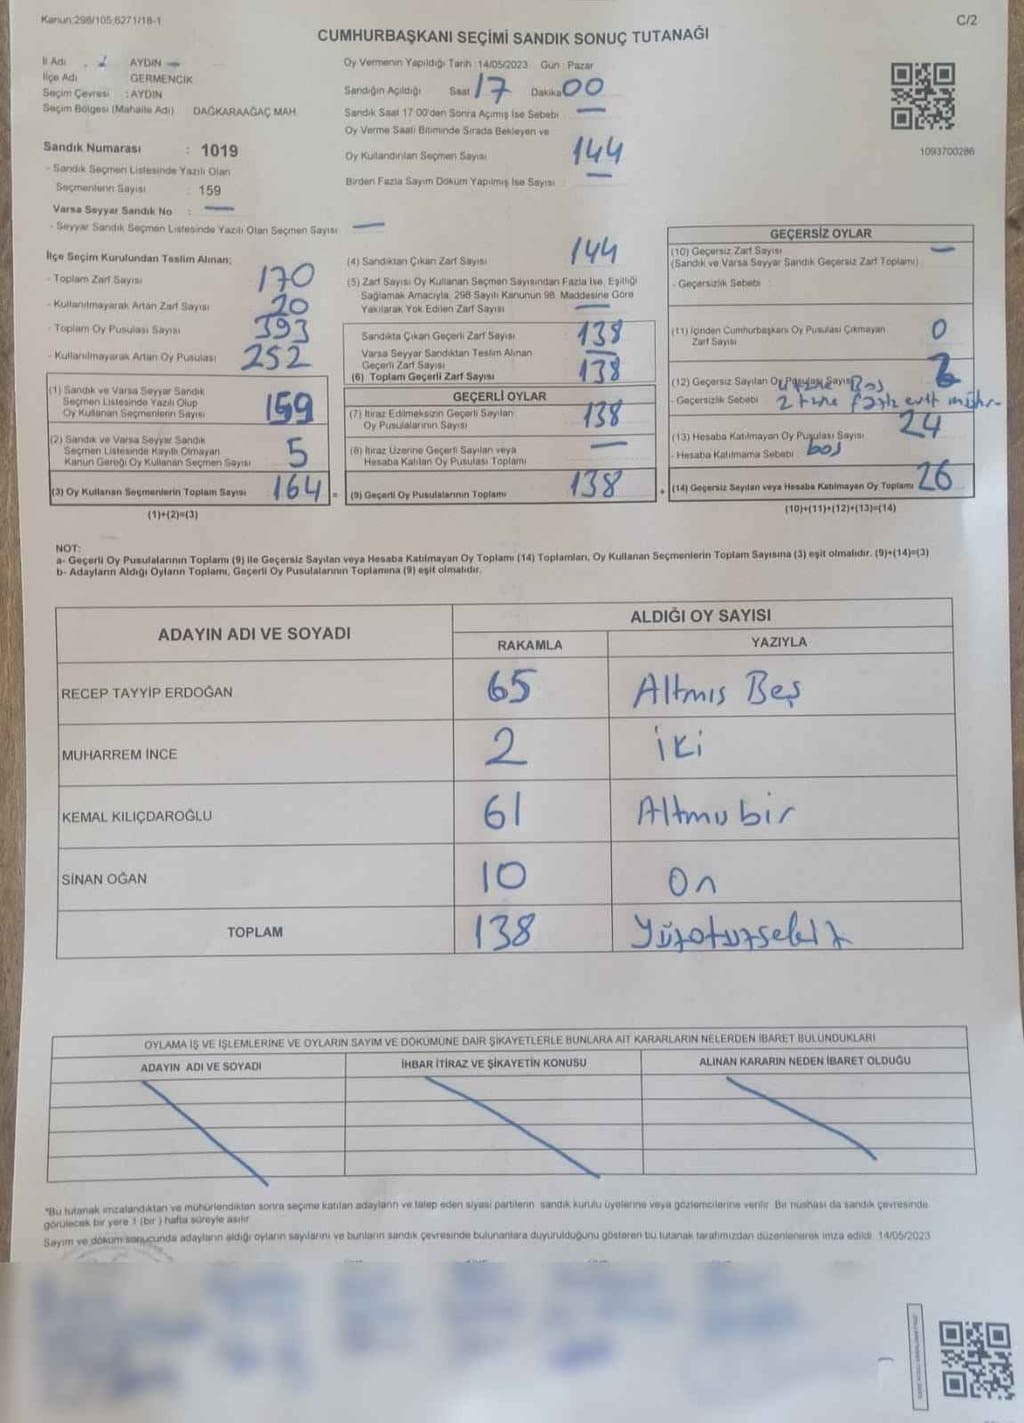 Kanun:298/105,6271/18-1
C/2
CUMHURBAŞKANI SEÇİMİ SANDIK SONUÇ TUTANAĞI
İl Adı : AYDIN
İlçe Adı GERMENCİK
Seçim Çevresi : AYDIN
Seçim Bölgesi (Mahalle Adı) DAĞKARAAĞAÇ MAH.
Sandık Numarası : 1019
- Sandık Seçmen Listesinde Yazılı Olan
Seçmenlerin Sayısı : 159
Varsa Seyyar Sandık No : —
- Seyyar Sandık Seçmen Listesinde Yazılı Olan Seçmen Sayısı —
Oy Vermenin Yapıldığı Tarih :14/05/2023 Gün : Pazar
Sandığın Açıldığı Saat 17 Dakika 00
Sandık Saat 17 00'den Sonra Açımış İse Sebebi —
Oy Verme Saati Bitiminde Sırada Bekleyen ve
Oy Kullandırılan Seçmen Sayısı 144
Birden Fazla Sayım Döküm Yapılmış İse Sayısı : —
1093700286
İlçe Seçim Kurulundan Teslim Alınan;
- Toplam Zarf Sayısı 170
- Kullanılmayarak Artan Zarf Sayısı 20
- Toplam Oy Pusulası Sayısı 393
- Kullanılmayarak Artan Oy Pusulası 252
(1) Sandık ve Varsa Seyyar Sandık
Seçmen Listesinde Yazılı Olup
Oy Kullanan Seçmenlerin Sayısı 159
(2) Sandık ve Varsa Seyyar Sandık
Seçmen Listesinde Kayılı Olmayan
Kanun Gereği Oy Kullanan Seçmen Sayısı 5
(3) Oy Kullanan Seçmenlerin Toplam Sayısı 164 =
(1)+(2)=(3)
(4) Sandıktan Çıkan Zarf Sayısı 144
(5) Zarf Sayısı Oy Kullanan Seçmen Sayısından Fazla İse, Eşitliği
Sağlamak Amacıyla, 298 Sayılı Kanunun 98. Maddesine Göre
Yakılarak Yok Edilen Zarf Sayısı —
Sandıkta Çıkan Geçerli Zarf Sayısı 138
Varsa Seyyar Sandıktan Teslim Alınan
Geçerli Zarf Sayısı —
(6) Toplam Geçerli Zarf Sayısı 138
GEÇERLİ OYLAR
(7) İtiraz Edilmeksizin Geçerli Sayılan
Oy Pusulalarının Sayısı 138
(8) İtiraz Üzerine Geçerli Sayılan veya
Hesaba Katılan Oy Pusulası Toplamı —
(9) Geçerli Oy Pusulalarının Toplamı 138 +
GEÇERSİZ OYLAR
(10) Geçersiz Zarf Sayısı —
(Sandık ve Varsa Seyyar Sandık Geçersiz Zarf Toplamı)
- Geçersizlik Sebebi :
(11) İçinden Cumhurbaşkanı Oy Pusulası Çıkmayan
Zarf Sayısı 0
(12) Geçersiz Sayılan Oy Pusulası Sayısı
- Geçersizlik Sebebi 2 tane
(13) Hesaba Katılmayan Oy Pusulası Sayısı 24
- Hesaba Katılmama Sebebi : boş
(14) Geçersiz Sayılan veya Hesaba Katılmayan Oy Toplamı 26
(10)+(11)+(12)+(13)=(14)
NOT:
a- Geçerli Oy Pusulalarının Toplamı (9) ile Geçersiz Sayılan veya Hesaba Katılmayan Oy Toplamı (14) Toplamları, Oy Kullanan Seçmenlerin Toplam Sayısına (3) eşit olmalıdır. (9)+(14)=(3)
b- Adayların Aldığı Oyların Toplamı, Geçerli Oy Pusulalarının Toplamına (9) eşit olmalıdır.
ADAYIN ADI VE SOYADI ALDIĞI OY SAYISI
RAKAMLA YAZIYLA
RECEP TAYYİP ERDOĞAN 65 Altmış Beş
MUHARREM İNCE 2 İki
KEMAL KILIÇDAROĞLU 61 Altmış bir
SİNAN OĞAN 10 On
TOPLAM 138 Yüzotuzsekiz
OYLAMA İŞ VE İŞLEMLERİNE VE OYLARIN SAYIM VE DÖKÜMÜNE DAİR ŞİKAYETLERLE BUNLARA AİT KARARLARIN NELERDEN İBARET BULUNDUKLARI
ADAYIN ADI VE SOYADI İHBAR İTİRAZ VE ŞİKAYETİN KONUSU ALINAN KARARIN NEDEN İBARET OLDUĞU
*Bu tutanak imzalandıktan ve mühürlendikten sonra seçime katılan adayların ve talep eden siyasi partilerin sandık kurulu üyelerine veya gözlemcilerine verilir. Bir nüshası da sandık çevresinde
görülecek bir yere 1 (bir ) hafta süreyle asılır
Sayım ve döküm sonucunda adayların aldığı oyların sayılarını ve bunların sandık çevresinde bulunanlara duyurulduğunu gösteren bu tutanak tarafımızdan düzenlenerek imza edildi. 14/05/2023